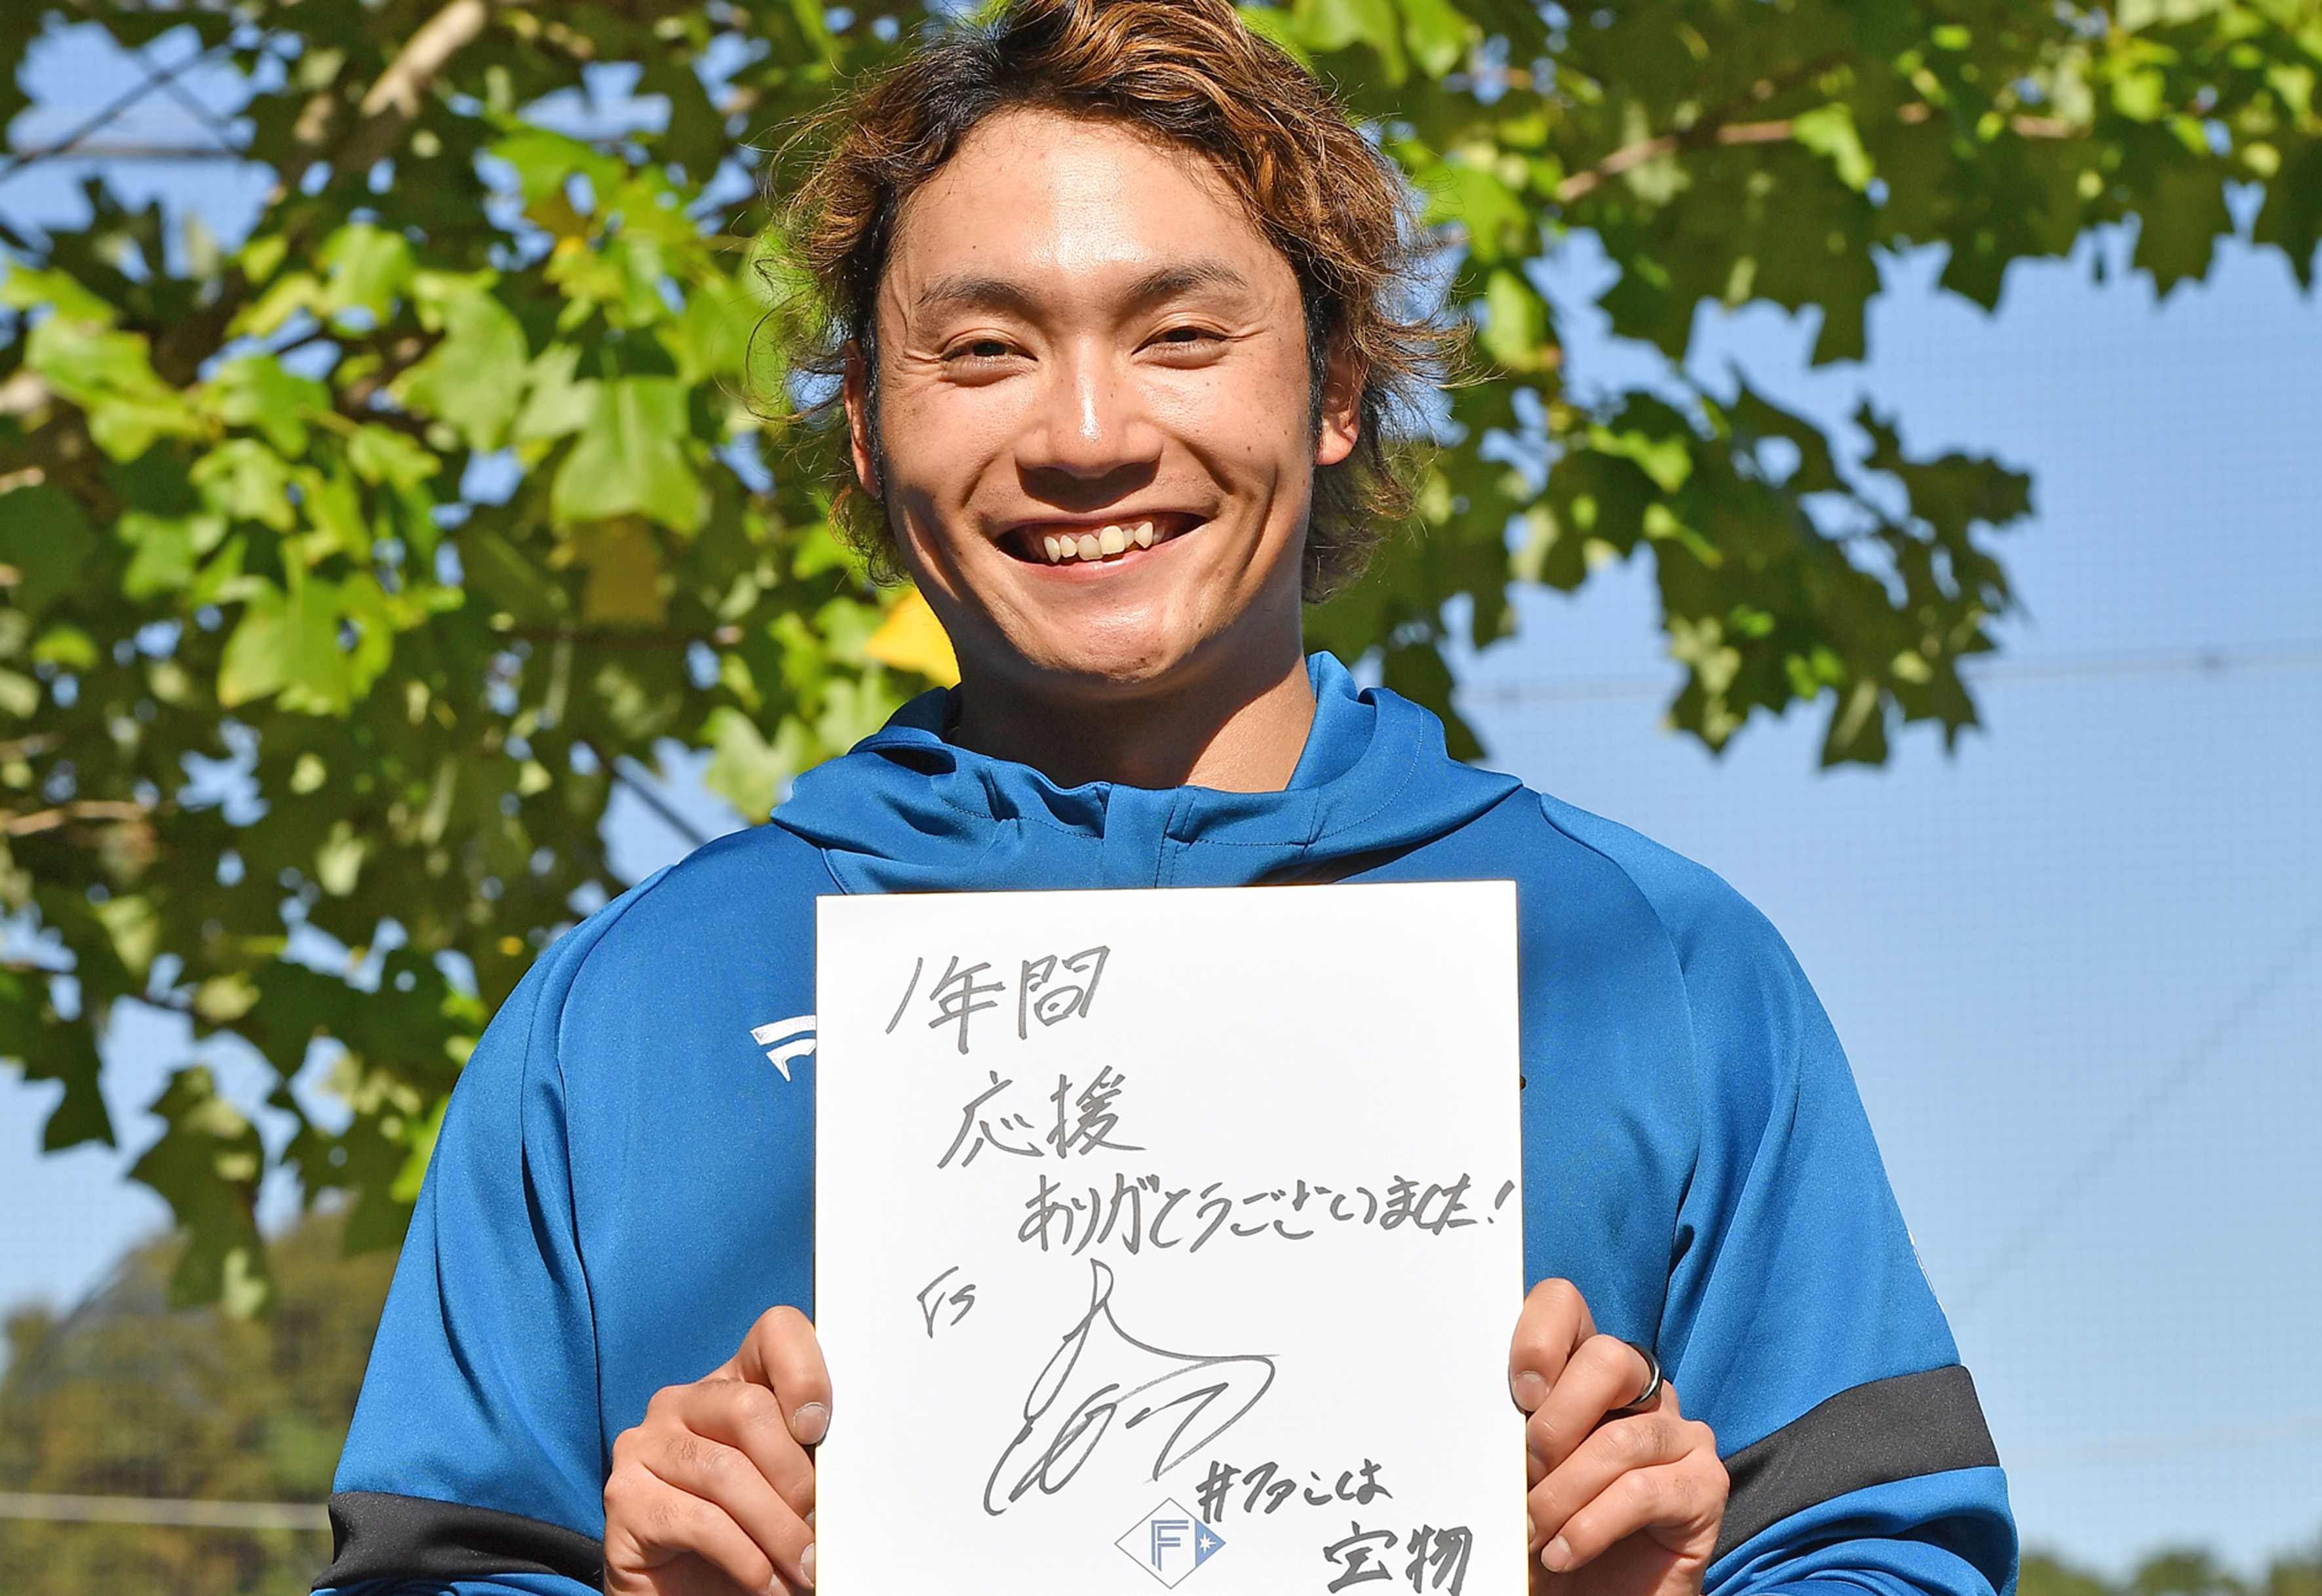 1年間
応援
ありがとうございました!
Fs
#ファンは
宝物
F